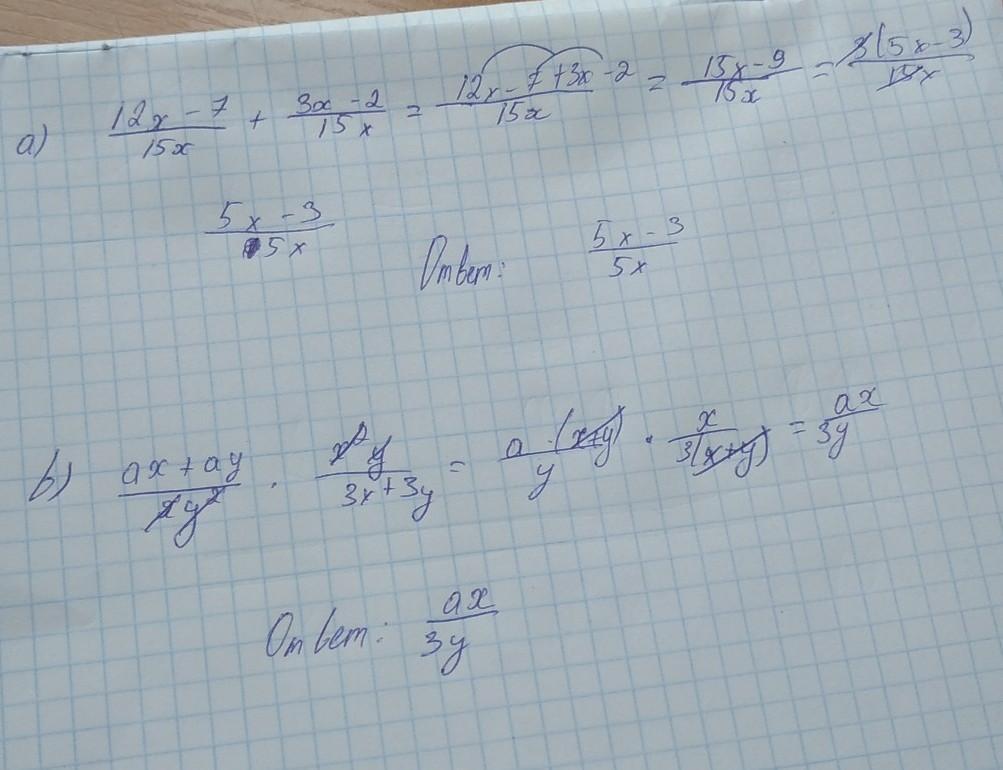 a) (12x - 7)/(15x) + (3x - 2)/(15x) = (12x - 7 + 3x - 2)/(15x) = (15x - 9)/(15x) = (3(5x - 3))/(15x)
(5x - 3)/(5x) Ответ: (5x - 3)/(5x)
b) (ax + ay)/(xy²) · (x²y)/(3x + 3y) = (a·(x+y))/(y) · (x)/(3(x+y)) = (ax)/(3y)
Ответ: (ax)/(3y)